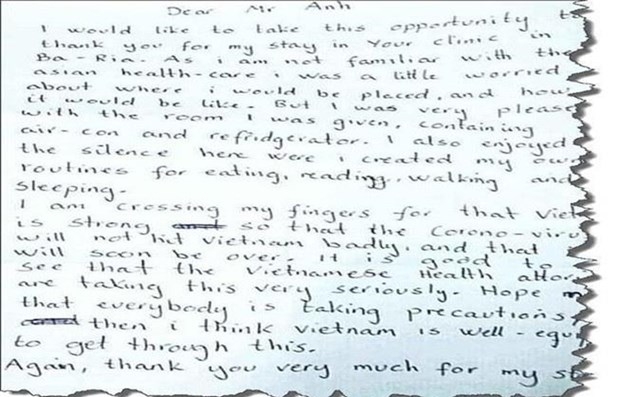 Dear Mr Anh
I would like to take this opportunity t
thank you for my stay in Your clinic in
Ba-Ria. As i am not familiar with the
asian health-care i was a little worried
about where i would be placed, and how
it would be like. But I was very please
with the room I was given, containing
air-con and refridgerator. I also enjoyed
the silence here were i created my own
routines for eating, reading, walking and
sleeping.
I am crossing my fingers for that Viet
is strong so that the Corono-viru
will not hit vietnam badly, and that
will soon be over. It is good to
see that the Vietnamese Health attor
are taking this very seriously. Hope
that everybody is taking precautions,
then i think vietnam is well-equi
to get through this.
Again, thank you very much for my st